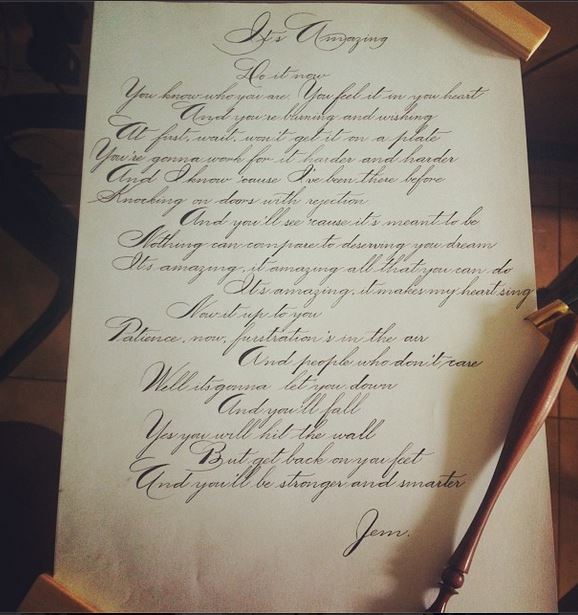 It's Amazing
Do it now
You know who you are. You feel it in you heart
And you're burning and wishing
At first, wait, won't get it on a plate
You're gonna work for it harder and harder
And I know 'cause I've been there before
Knocking on doors with rejection
And you'll see 'cause it's meant to be
Nothing can compare to deserving you dream
It's amazing, it amazing all that you can do
It's amazing, it makes my heart sing
Now it up to you
Patience, now, furstration's in the air
And people who don't care
Well its gonna let you down
And you'll fall
Yes you will hit the wall
But get back on you feet
And you'll be stronger and smarter
Jem.